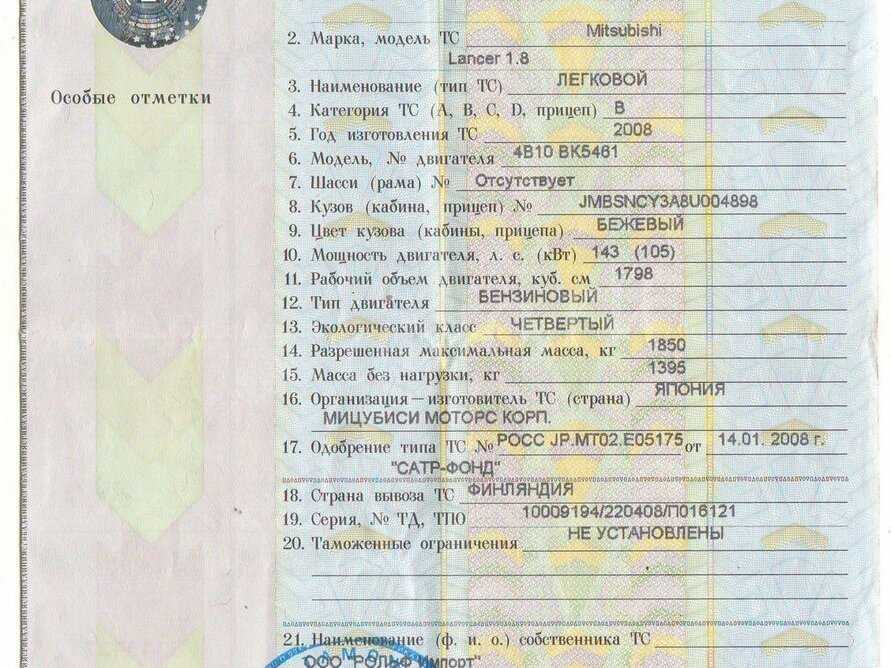 2. Марка, модель ТС Mitsubishi
Lancer 1.8
Особые отметки
3. Наименование (тип ТС) ЛЕГКОВОЙ
4. Категория ТС (А, В, С, D, прицеп) В
5. Год изготовления ТС 2008
6. Модель, № двигателя 4B10 BK5461
7. Шасси (рама) № Отсутствует
8. Кузов (кабина, прицеп) № JMBSNCY3A8U004898
9. Цвет кузова (кабины, прицепа) БЕЖЕВЫЙ
10. Мощность двигателя, л. с. (кВт) 143 (105)
11. Рабочий объем двигателя, куб. см 1798
12. Тип двигателя БЕНЗИНОВЫЙ
13. Экологический класс ЧЕТВЕРТЫЙ
14. Разрешенная максимальная масса, кг 1850
15. Масса без нагрузки, кг 1395
16. Организация—изготовитель ТС (страна) ЯПОНИЯ
МИЦУБИСИ МОТОРС КОРП.
17. Одобрение типа ТС № РОСС JP.MT02.E05175 от 14.01. 2008 г.
"САТР-ФОНД"
18. Страна вывоза ТС ФИНЛЯНДИЯ
19. Серия, № ТД, ТПО 10009194/220408/П016121
20. Таможенные ограничения НЕ УСТАНОВЛЕНЫ
21. Наименование (ф. и. о.) собственника ТС
ООО "РОЛЬФ Импорт"